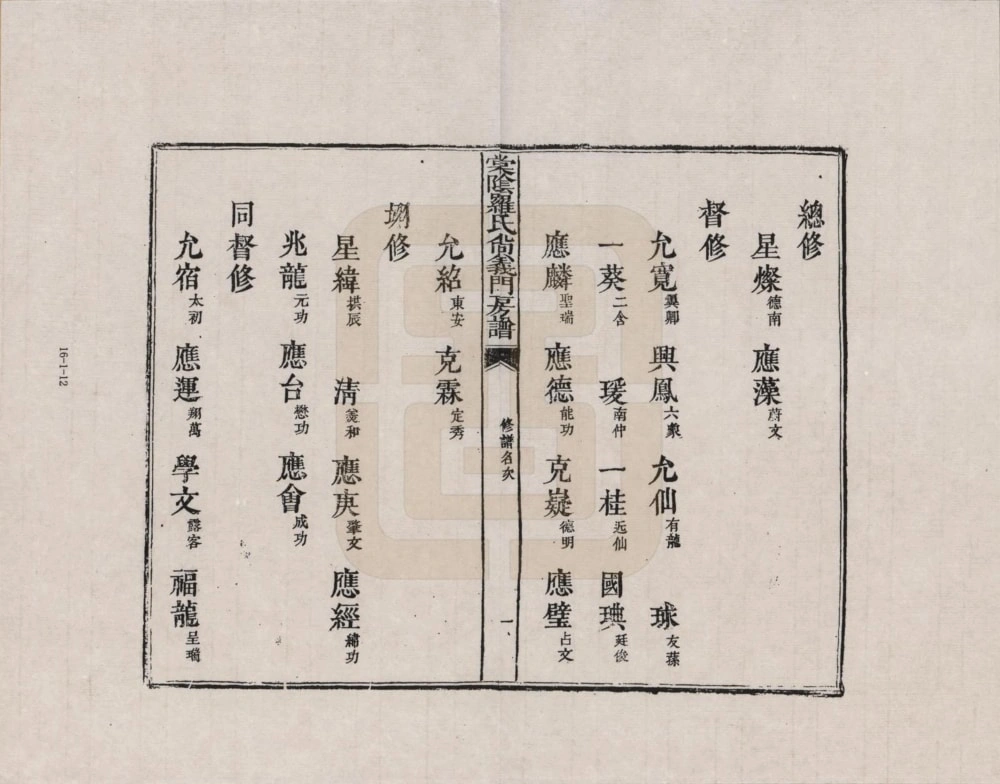 總修
星燦德南　應藻蔚文
督修
允寬㒞卿　興鳳六彖　允仙有龍　球友蓀
一葵二含　瑗南仲　一桂近仙　國琠廷俊
應麟聖瑞　應德能功　克嶷德明　應璧占文
棠陰羅氏尙義門房譜　修譜名次　一
允紹東安　克霖定秀
修
星緯拱辰　清羙和　應庚肇文　應經緯功
兆龍元功　應台懋功　應會成功
同督修
允宿太初　應運翔萬　學文露客　福龍呈瑞
16-1-12